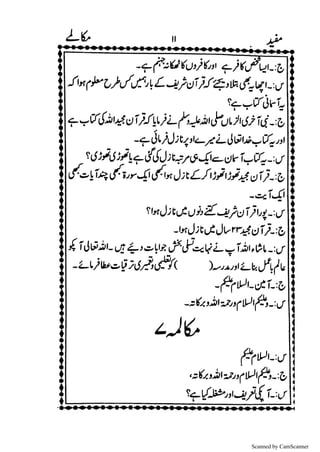 مفید ۱۱ مکالمے
ج:۔ایسا شخص کافر ہے اور کافروں کا ٹھکانہ جہنم ہے۔
س:۔اچھا یہ بھی بتلا دیجئے کہ قرآن شریف کے بارے میں ہمیں کس طرح معلوم ہوا کہ
یہ آسمانی کتاب ہے؟
ج:۔نبی آخری الزماں صلی اللہ علیہ وسلم نے فرمایا کہ قرآن مجید اللہ کی کتاب ہے
اور یہ کتاب خدا تعالیٰ نے میرے اوپر نازل فرمائی ہے۔
س:۔یہ کتاب آسمان سے ایک ہی مرتبہ نازل کی گئی ہے یا تھوڑی تھوڑی؟
ج:۔قرآن مجید تھوڑا تھوڑا کر کے نازل ہوا کبھی ایک سورۃ کبھی چند آیات کبھی
ایک آیت۔
س:۔پورا قرآن شریف کتنے دنوں میں نازل ہوا؟
ج:۔قرآن مجید ۲۳ سال میں نازل ہوا۔
س:۔ماشاء اللہ آپ نے نہایت تسلی بخش جوابات دیئے ہیں۔اللہ تعالیٰ آپ کو
عالم باعمل بنائے اور مدرسہ ( ) کو تعلیمی وتعمیری ترقیات عطا فرمائے۔
ج:۔آمین۔السلام علیکم
س:۔وعلیکم السلام ورحمۃ اللہ وبرکاتہ۔
مکالمہ ۷
س:۔السلام علیکم
ج:۔وعلیکم السلام ورحمۃ اللہ وبرکاتہ،
س:۔آپ کی تعریف اور مشغلہ کیا ہے؟
Scanned by CamScanner